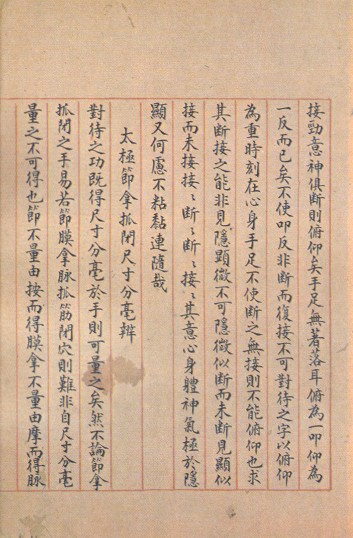 接勁意神俱斷則俯仰矣手足無著落耳俯為一叩仰為
一反而已矣不使叩反非斷而復接不可對待之字以俯仰
為重時刻在心身手足不使斷之無接則不能俯仰也求
其斷接之能非見隱顯微不可隱微似斷而未斷見顯似
接而未接接〻斷〻斷〻接〻其意心身體神氣極於隱
顯又何慮不粘黏連隨哉
太極節拿抓閉尺寸分毫辨
對待之功既得尺寸分毫於手則可量之矣然不論節拿
抓閉之手易若節膜拿脉抓筋閉穴則難非自尺寸分毫
量之不可得也節不量由按而得膜拿不量由摩而得脉